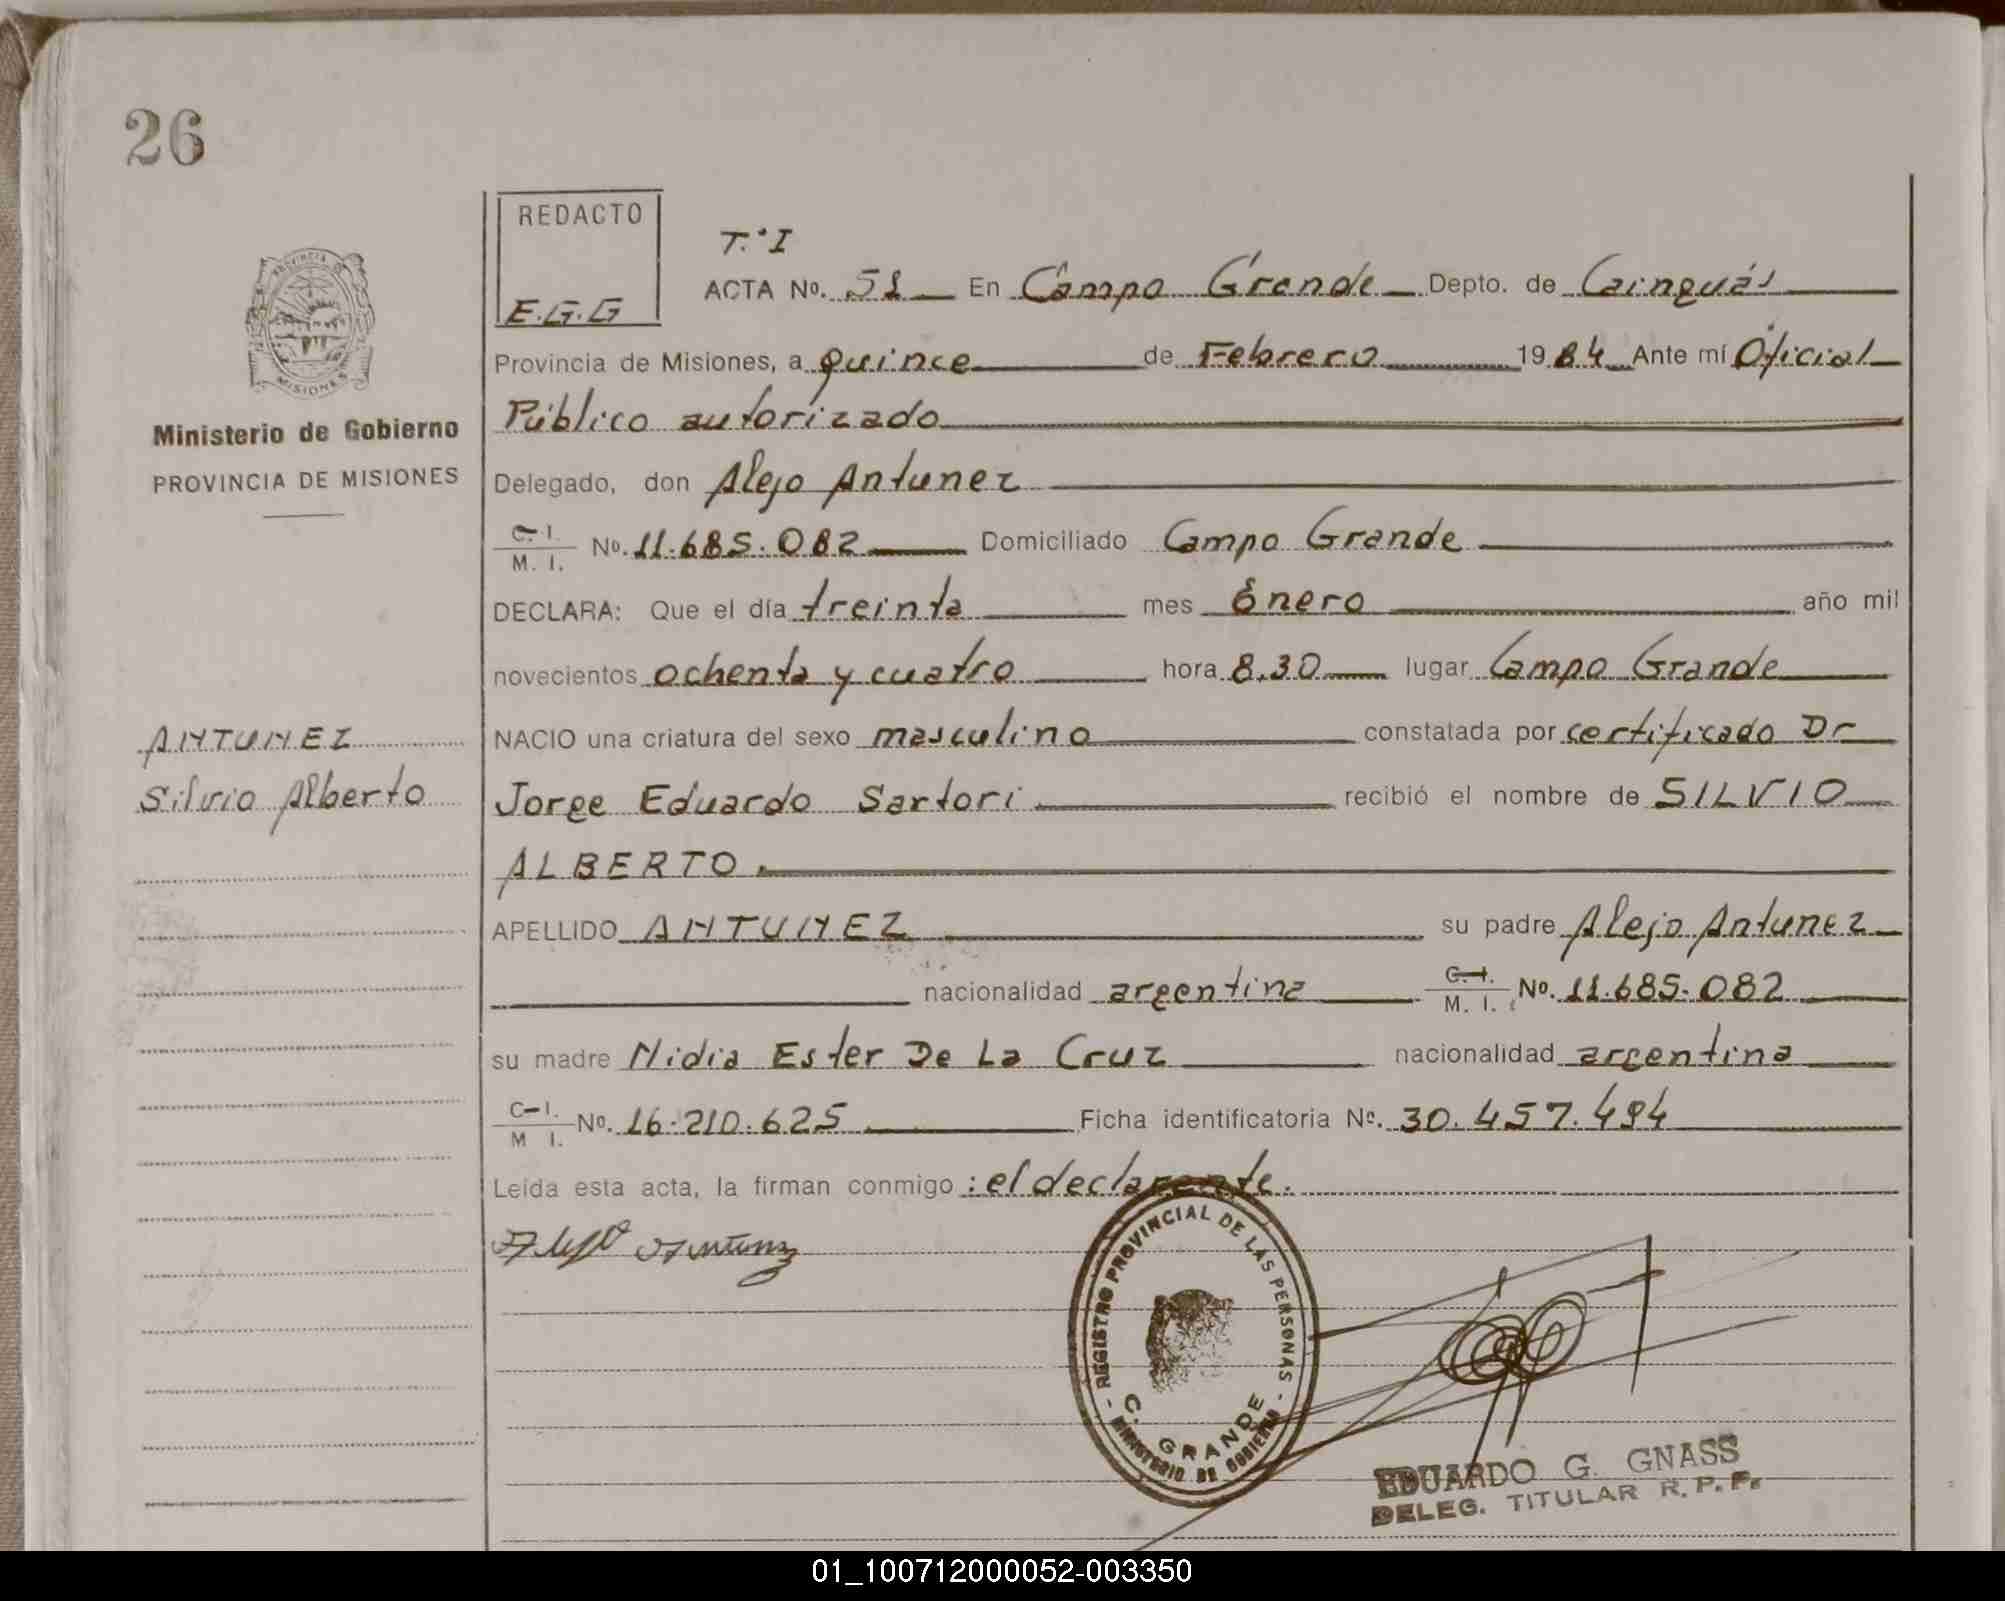 26
PROVINCIA DE
MISIONES
Ministerio de Gobierno
PROVINCIA DE MISIONES
ANTUNEZ
Silvio Alberto
REDACTO
E.G.G
T.º I
ACTA No. 51 En Campo Grande Depto. de Cainguás
Provincia de Misiones, a quince de Febrero 1984 Ante mí Oficial
Público autorizado
Delegado, don Alejo Antunez
C. I. M. I. No. 11.685.082 Domiciliado Campo Grande
DECLARA: Que el día treinta mes Enero año mil
novecientos ochenta y cuatro hora 8,30 lugar Campo Grande
NACIO una criatura del sexo masculino constatada por certificado Dr
Jorge Eduardo Sartori recibió el nombre de SILVIO
ALBERTO.
APELLIDO ANTUNEZ su padre Alejo Antunez
nacionalidad argentina C. I. M. I. No. 11.685.082
su madre Nidia Ester De La Cruz nacionalidad argentina
C. I. M I. No. 16.210.625 Ficha identificatoria No. 30.457.494
Leída esta acta, la firman conmigo : el declarante.
Alejo Antunez
- REGISTRO PROVINCIAL DE LAS PERSONAS -
C. GRANDE
MINISTERIO DE GOBIERNO
EDUARDO G. GNASS
DELEG. TITULAR R. P. P.
01_100712000052-003350